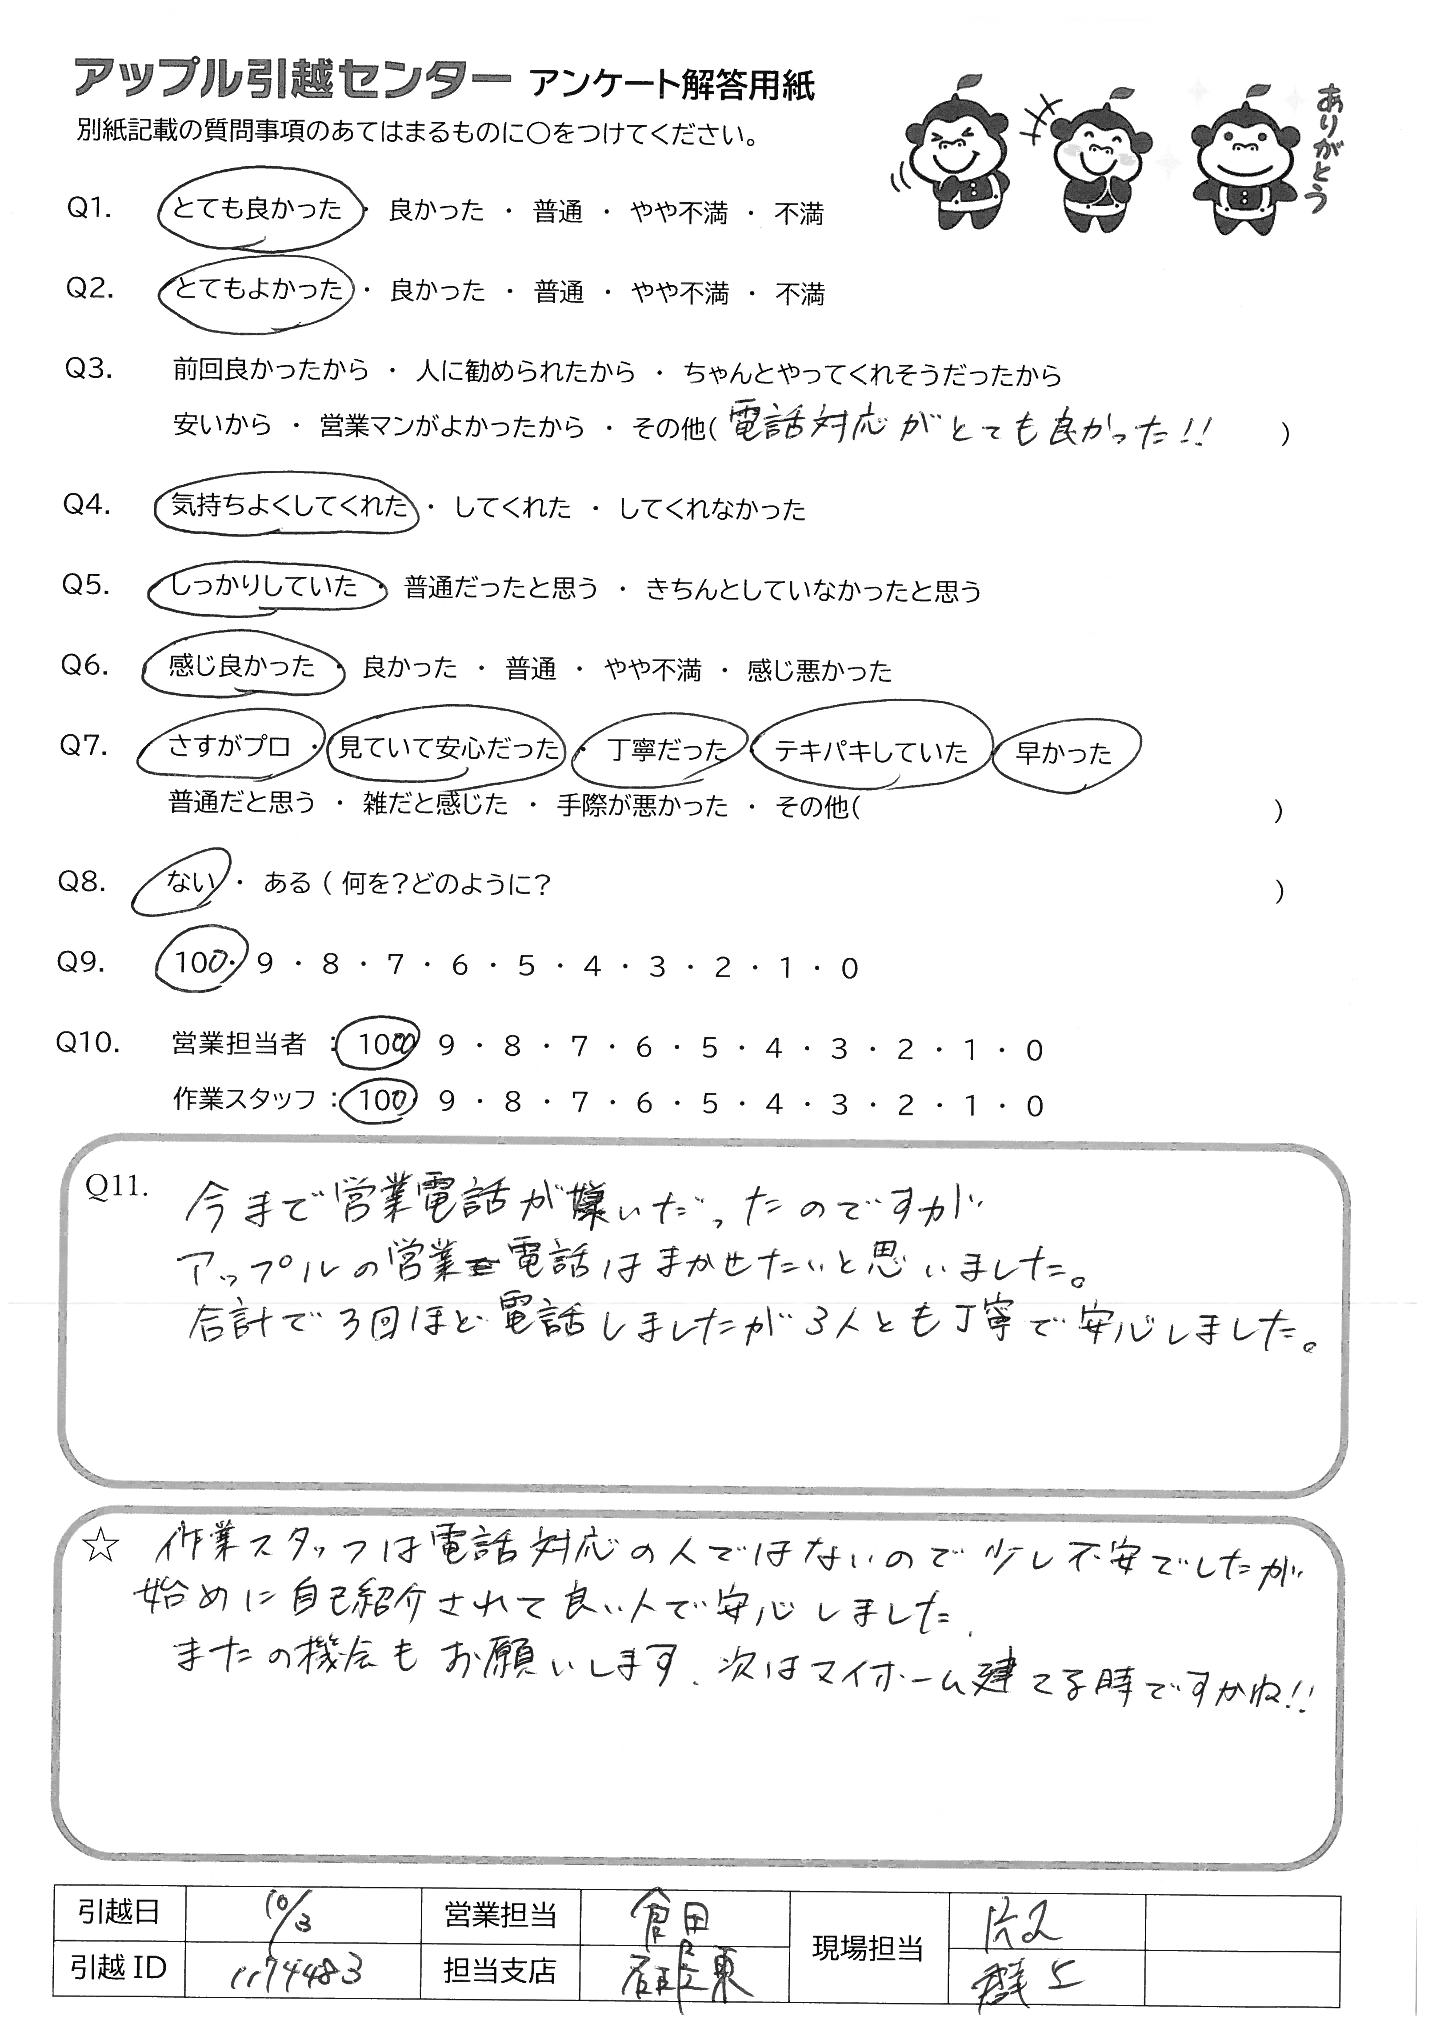 アップル引越センター アンケート解答用紙
ありがとう
別紙記載の質問事項のあてはまるものに〇をつけてください。
Q1. とても良かった ・ 良かった ・ 普通 ・ やや不満 ・ 不満
Q2. とてもよかった ・ 良かった ・ 普通 ・ やや不満 ・ 不満
Q3. 前回良かったから ・ 人に勧められたから ・ ちゃんとやってくれそうだったから
安いから ・ 営業マンがよかったから ・ その他( 電話対応がとても良かった!! )
Q4. 気持ちよくしてくれた ・ してくれた ・ してくれなかった
Q5. しっかりしていた ・ 普通だったと思う ・ きちんとしていなかったと思う
Q6. 感じ良かった ・ 良かった ・ 普通 ・ やや不満 ・ 感じ悪かった
Q7. さすがプロ ・ 見ていて安心だった ・ 丁寧だった ・ テキパキしていた ・ 早かった
普通だと思う ・ 雑だと感じた ・ 手際が悪かった ・ その他( )
Q8. ない ・ ある ( 何を?どのように? )
Q9. 100・9 ・ 8 ・ 7 ・ 6 ・ 5 ・ 4 ・ 3 ・ 2 ・ 1 ・ 0
Q10. 営業担当者 : 1000 9 ・ 8 ・ 7 ・ 6 ・ 5 ・ 4 ・ 3 ・ 2 ・ 1 ・ 0
作業スタッフ : 100 9 ・ 8 ・ 7 ・ 6 ・ 5 ・ 4 ・ 3 ・ 2 ・ 1 ・ 0
Q11. 今まで営業電話が嫌いだったのですが
アップルの営業電話はまかせたいと思いました。
合計で3回ほど電話しましたが3人とも丁寧で安心しました。
☆ 作業スタッフは電話対応の人ではないので少し不安でしたが
始めに自己紹介されて良い人で安心しました.
またの機会もお願いします. 次はマイホーム建てる時ですかね!!
引越日 10/3 営業担当 倉田 現場担当
引越ID 1174483 担当支店